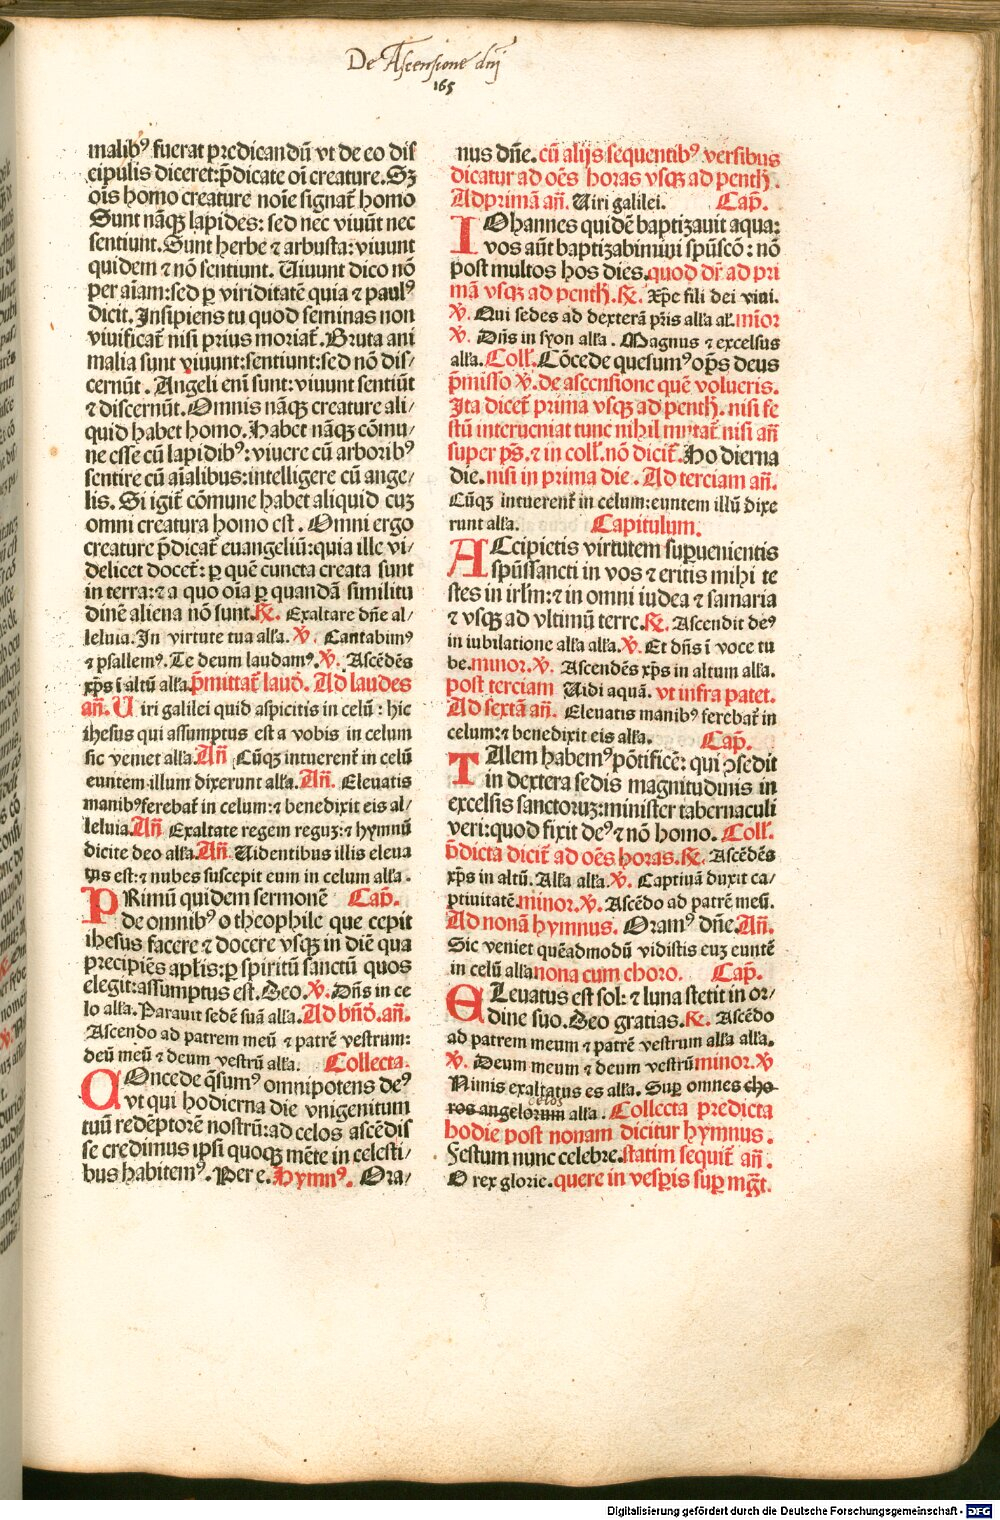 De Ascensione dnj
165
malibꝰ fuerat predicandū vt de eo dis
cipulis diceret: p̄dicate oī creature. Sꝫ
oīs homo creature noīe signat̄ homo
Sunt nāqꝫ lapides: sed nec viuūt nec
sentiunt. Sunt herbe ⁊ arbusta: viuunt
quidem ⁊ nō sentiunt. Uiuunt dico nō
per aīam: sed ꝑ viriditatē quia ⁊ paulꝰ
dicit. Insipiens tu quod seminas non
viuificat̄ nisi prius moriat̄. Bruta ani
malia sunt viuunt: sentiunt: sed nō dis/
cernūt. Angeli enī sunt: viuunt sentiūt
⁊ discernūt. Omnis nāqꝫ creature ali/
quid habet homo. Habet nāqꝫ cōmu/
ne esse cū lapidibꝰ: viuere cū arboribꝰ
sentire cū aīalibus: intelligere cū ange/
lis. Si igit̄ cōmune habet aliquid cuꝫ
omni creatura homo est. Omni ergo
creature p̄dicat̄ euangeliū: quia ille vi/
delicet docet̄: ꝑ quē cuncta creata sunt
in terra: ⁊ a quo oīa ꝑ quandā similitu
dinē aliena nō sunt. ℟. Exaltare dn̄e al/
leluia. In virtute tua alľa. ℣. Cantabimꝰ
⁊ psallemꝰ. Te deum laudamꝰ. ℣. Ascēdēs
xp̄s ī altū alľa. p̄mittat̄ laud̄. Ad laudes
an̄. Uiri galilei quid aspicitis in celū: hic
ihesus qui assumptus est a vobis in celum
sic veniet alľa. An̄ Cūqꝫ intuerent̄ in celū
euntem illum dixerunt alľa. An̄. Eleuatis
manibꝰ ferebat̄ in celum: ⁊ benedixit eis al/
leluia. An̄ Exaltate regem reguꝫ: ⁊ hymnū
dicite deo alľa. An̄. Uidentibus illis eleua
tus est: ⁊ nubes suscepit eum in celum alľa.
PRimū quidem sermonē Cap̄.
de omnibꝰ o theophile que cepit
ihesus facere ⁊ docere vsqꝫ in diē qua
precipiēs apľis: ꝑ spiritū sanctū quos
elegit: assumptus est. Deo. ℣. Dn̄s in ce
lo alľa. Parauit sedē suā alľa. Ad bn̄d̄. an̄.
Ascendo ad patrem meū ⁊ patrē vestrum:
deū meū ⁊ deum vestrū alľa. Collecta.
COncede q̄sumꝰ omnipotens deꝰ
vt qui hodierna die vnigenitum
tuū redēptorē nostrū: ad celos ascēdis
se credimus ipsi quoqꝫ mēte in celesti/
bus habitemꝰ. Per e. Hymnꝰ. Ora/
nus dn̄e. cū alijs sequentibꝰ versibus
dicatur ad oēs horas vsqꝫ ad penth̄.
Ad primā an̄. Uiri galilei. Cap̄.
IOhannes quidē baptizauit aqua:
vos aūt baptizabimini spūscō: nō
post multos hos dies. quod dr̄ ad pri
mā vsqꝫ ad penth̄. ℟. Xp̄e fili dei viui.
℣. Qui sedes ad dexterā pr̄is alľa aľ. miōr
℣. Dn̄s in syon alľa. Magnus ⁊ excelsus
alľa. Coll̄. Cōcede quesumꝰ op̄s deus
p̄misso ℣. de ascensione quē volueris.
Ita dicet̄ prima vsqꝫ ad penth̄. nisi fe
stū interueniat tunc nihil mutat̄ nisi an̄
super ps̄. ⁊ in coll̄. nō dicit̄. Ho dierna
die. nisi in prima die. Ad terciam an̄.
Cūqꝫ intuerent̄ in celum: euntem illū dixe
runt alľa. Capitulum.
ACcipietis virtutem suꝑuenientis
spūssancti in vos ⁊ eritis mihi te
stes in irľm: ⁊ in omni iudea ⁊ samaria
⁊ vsqꝫ ad vltimū terre. ℟. Ascendit deꝰ
in iubilatione alľa alľa. ℣. Et dn̄s ī voce tu
be. minor. ℣. Ascendēs xp̄s in altum alľa.
post terciam Uidi aquā. vt infra patet.
Ad sextā an̄. Eleuatis manibꝰ ferebat̄ in
celum: ⁊ benedixit eis alľa. Cap̄.
TAlem habemꝰ pōtificē: qui ꝯsedit
in dextera sedis magnitudinis in
excelsis sanctoruꝫ: minister tabernaculi
veri: quod fixit deꝰ ⁊ nō homo. Coll̄.
p̄dicta dicit̄ ad oēs horas. ℟. Ascēdēs
xp̄s in altū. Alľa alľa. ℣. Captiuā duxit ca/
ptiuitatē. minor. ℣. Ascēdo ad patrē meū.
Ad nonā hymnus. Oramꝰ dn̄e. An̄.
Sic veniet quēadmodū vidistis euꝫ euntē
in celū alľa nona cum choro. Cap̄.
ELeuatus est sol: ⁊ luna stetit in or/
dine suo. Deo gratias. ℟. Ascēdo
ad patrem meum ⁊ patrē vestrum alľa alľa.
℣. Deum meum ⁊ deum vestrū minor. ℣
Nimis exaltatus es alľa. Suꝑ omnes cho
celos
ros angelorum alľa. Collecta predicta
hodie post nonam dicitur hymnus.
Festum nunc celebre. statim sequit̄ an̄.
O rex glorie. quere in vesꝑis suꝑ mḡt.
Digitalisierung gefördert durch die Deutsche Forschungsgemeinschaft - DFG